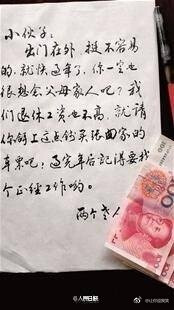 小伙子：
出门在外，挺不容易
的，就快过年了，你一定也
很想念父母家人吧？我
们退休工资也不高，就请
你拿上这点钱买张回家的
车票吧！过完年后记得要找
个正经工作哟。
两个老人
100
@人民日报